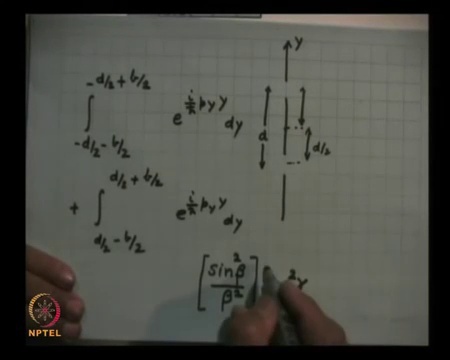 -d/2 + b/2
∫ e^{i/ħ p_y y} dy
-d/2 - b/2
d/2 + b/2
+ ∫ e^{i/ħ p_y y} dy
d/2 - b/2
y
d
d/2
[sin²β / β²]
²γ
NPTEL